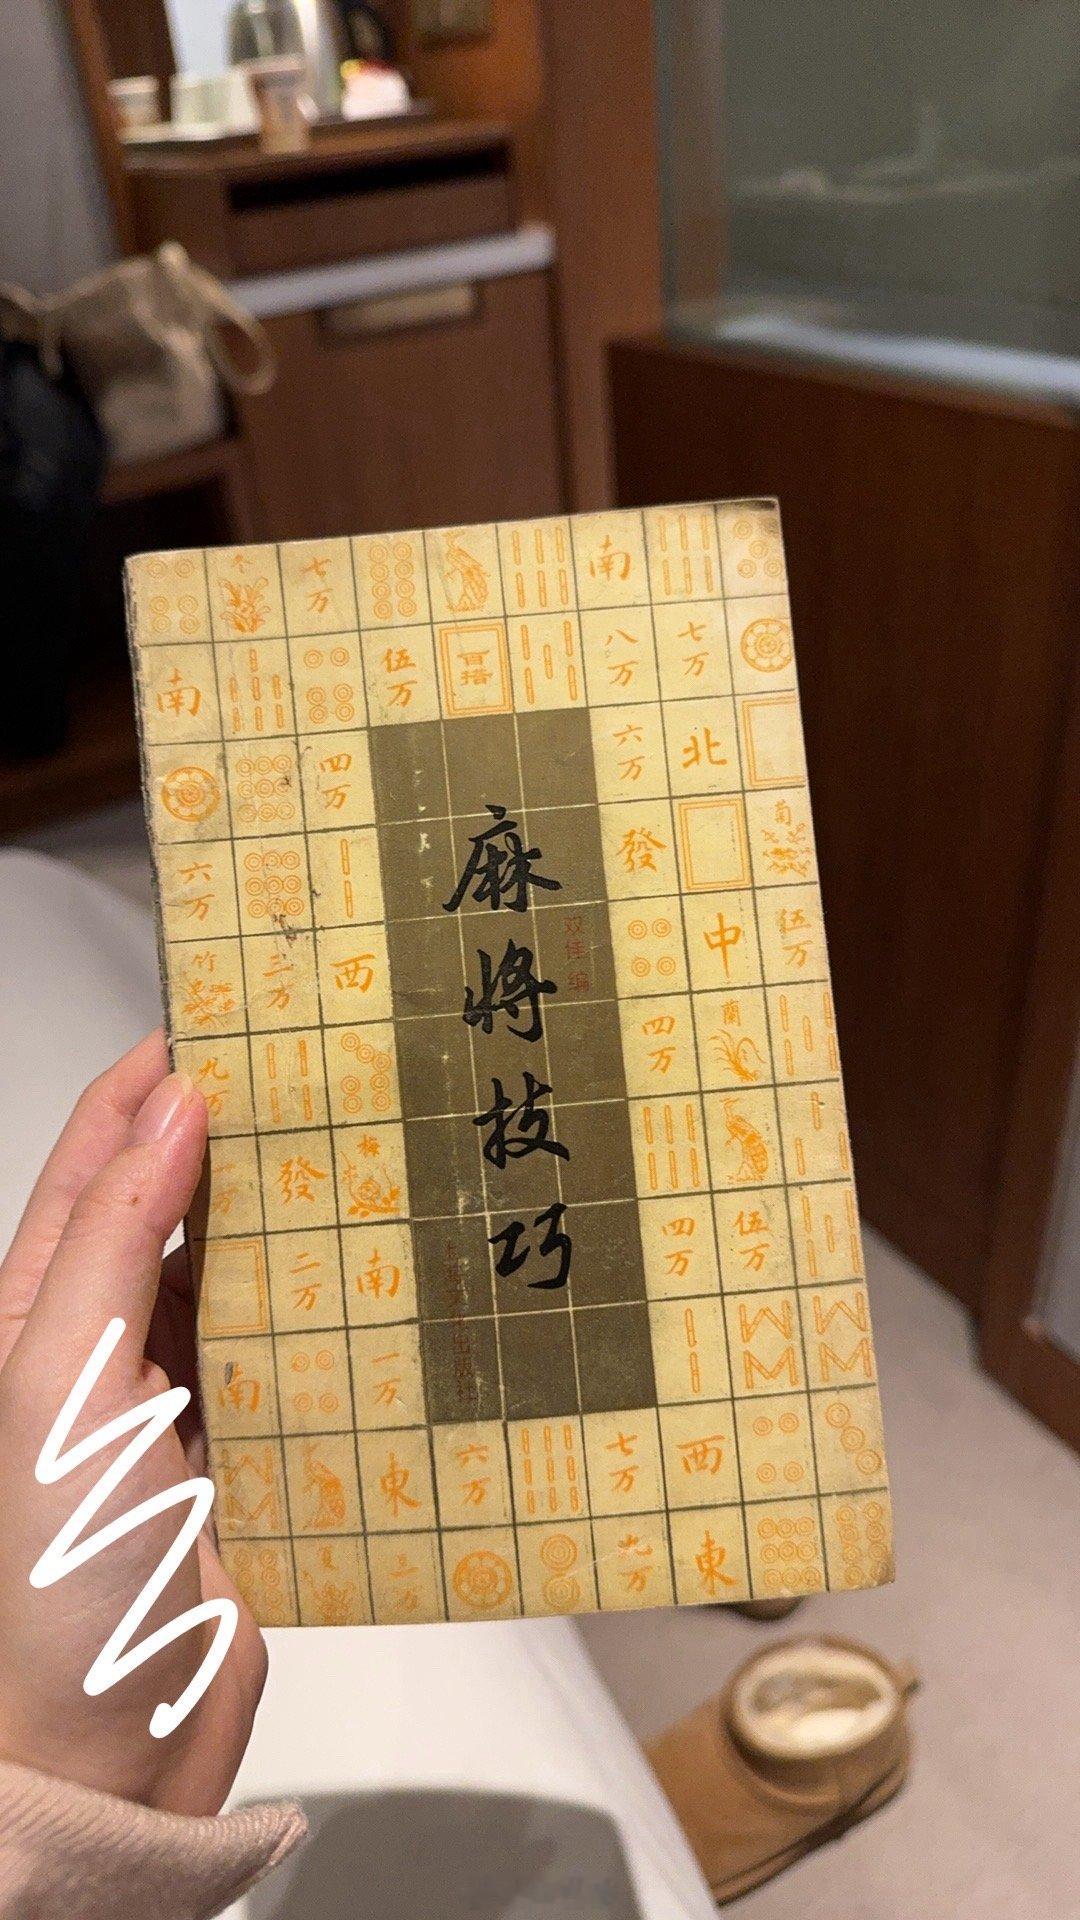 麻将技巧
双佳 编
上海文化出版社
冬
七万
南
南
伍万
百搭
八万
七万
四万
六万
北
六万
發
菊
竹
二万
西
中
伍万
九万
四万
蘭
一万
發
梅
二万
南
四万
伍万
南
一万
東
六万
七万
西
夏
三万
九万
東